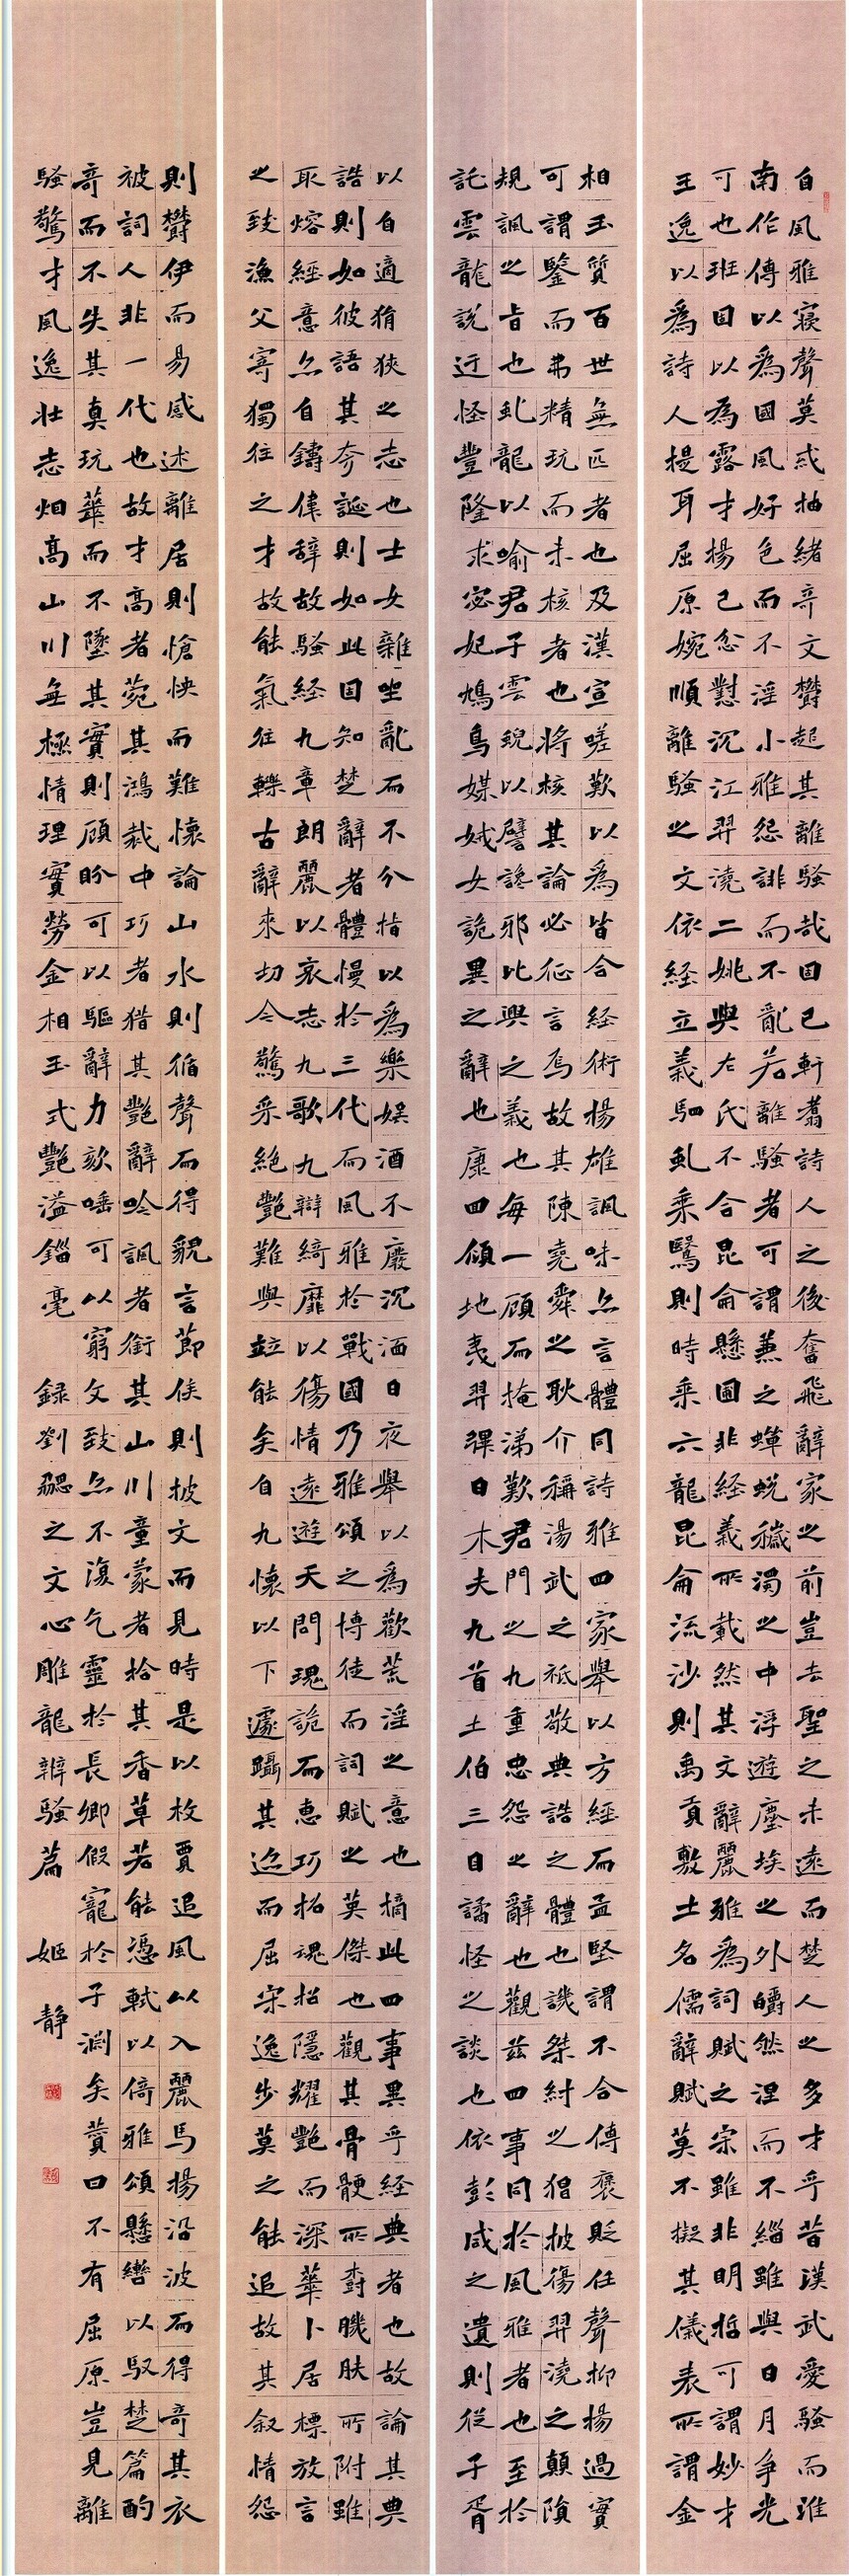 自風雅寢聲莫或抽緒奇文欝起其離騷哉固已軒翥詩人之後奮飛辭家之前豈去聖之未遠而楚人之多才乎昔漢武愛騷而淮
南作傳以為國風好色而不淫小雅怨誹而不亂若離騷者可謂兼之蟬蛻穢濁之中浮遊塵埃之外皭然涅而不緇雖與日月爭光
可也班固以為露才揚己忿懟沉江羿澆二姚與左氏不合昆侖懸圃非経義所載然其文辭麗雅為詞賦之宗雖非明哲可謂妙才
王逸以為詩人提耳屈原婉順離騷之文依経立義駟虬乘鷖則時乘六龍昆侖流沙則禹貢敷土名儒辭賦莫不擬其儀表所謂金
相玉質百世無匹者也及漢宣嗟歎以為皆合経術揚雄諷味亦言體同詩雅四家舉以方經而孟堅謂不合傳褒貶任聲抑揚過實
可謂鑒而弗精玩而未核者也將核其論必征言焉故其陳堯舜之耿介稱湯武之祗敬典誥之體也譏桀紂之猖披傷羿澆之顛隕
規諷之旨也虬龍以喻君子雲蜺以譬讒邪比興之義也每一顧而掩涕歎君門之九重忠怨之辭也觀茲四事同於風雅者也至於
託雲龍說迂怪豐隆求宓妃鴆鳥媒娀女詭異之辭也康回傾地夷羿彃日木夫九首土伯三目譎怪之談也依彭咸之遺則從子胥
以自適狷狹之志也士女雜坐亂而不分指以為樂娛酒不廢沉湎日夜舉以為歡荒淫之意也摘此四事異乎経典者也故論其典
誥則如彼語其夸誕則如此固知楚辭者體慢於三代而風雅於戰國乃雅頌之博徒而詞賦之英傑也觀其骨鯁所樹肌膚所附雖
取熔經意亦自鑄偉辞故騷経九章朗麗以哀志九歌九辯綺靡以傷情遠遊天問瑰詭而惠巧招魂招隱耀艷而深華卜居標放言
之致漁父寄獨往之才故能氣往轢古辭來切今驚采絕艷難與並能矣自九懷以下遽躡其跡而屈宋逸步莫之能追故其敘情怨
則欝伊而易感述離居則愴怏而難懷論山水則循聲而得貌言節候則披文而見時是以枚賈追風以入麗馬揚沿波而得奇其衣
被詞人非一代也故才高者菀其鴻裁中巧者猎其艷辭吟諷者銜其山川童蒙者拾其香草若能憑軾以倚雅頌懸轡以馭楚篇酌
奇而不失其真玩華而不墜其實則顧盼可以驅辭力欬唾可以窮文致亦不復乞靈於長卿假寵於子淵矣贊曰不有屈原豈見離
騷驚才風逸壯志烟高山川無極情理實勞金相玉式艷溢錙毫 録劉勰之文心雕龍辨騷篇 姬靜